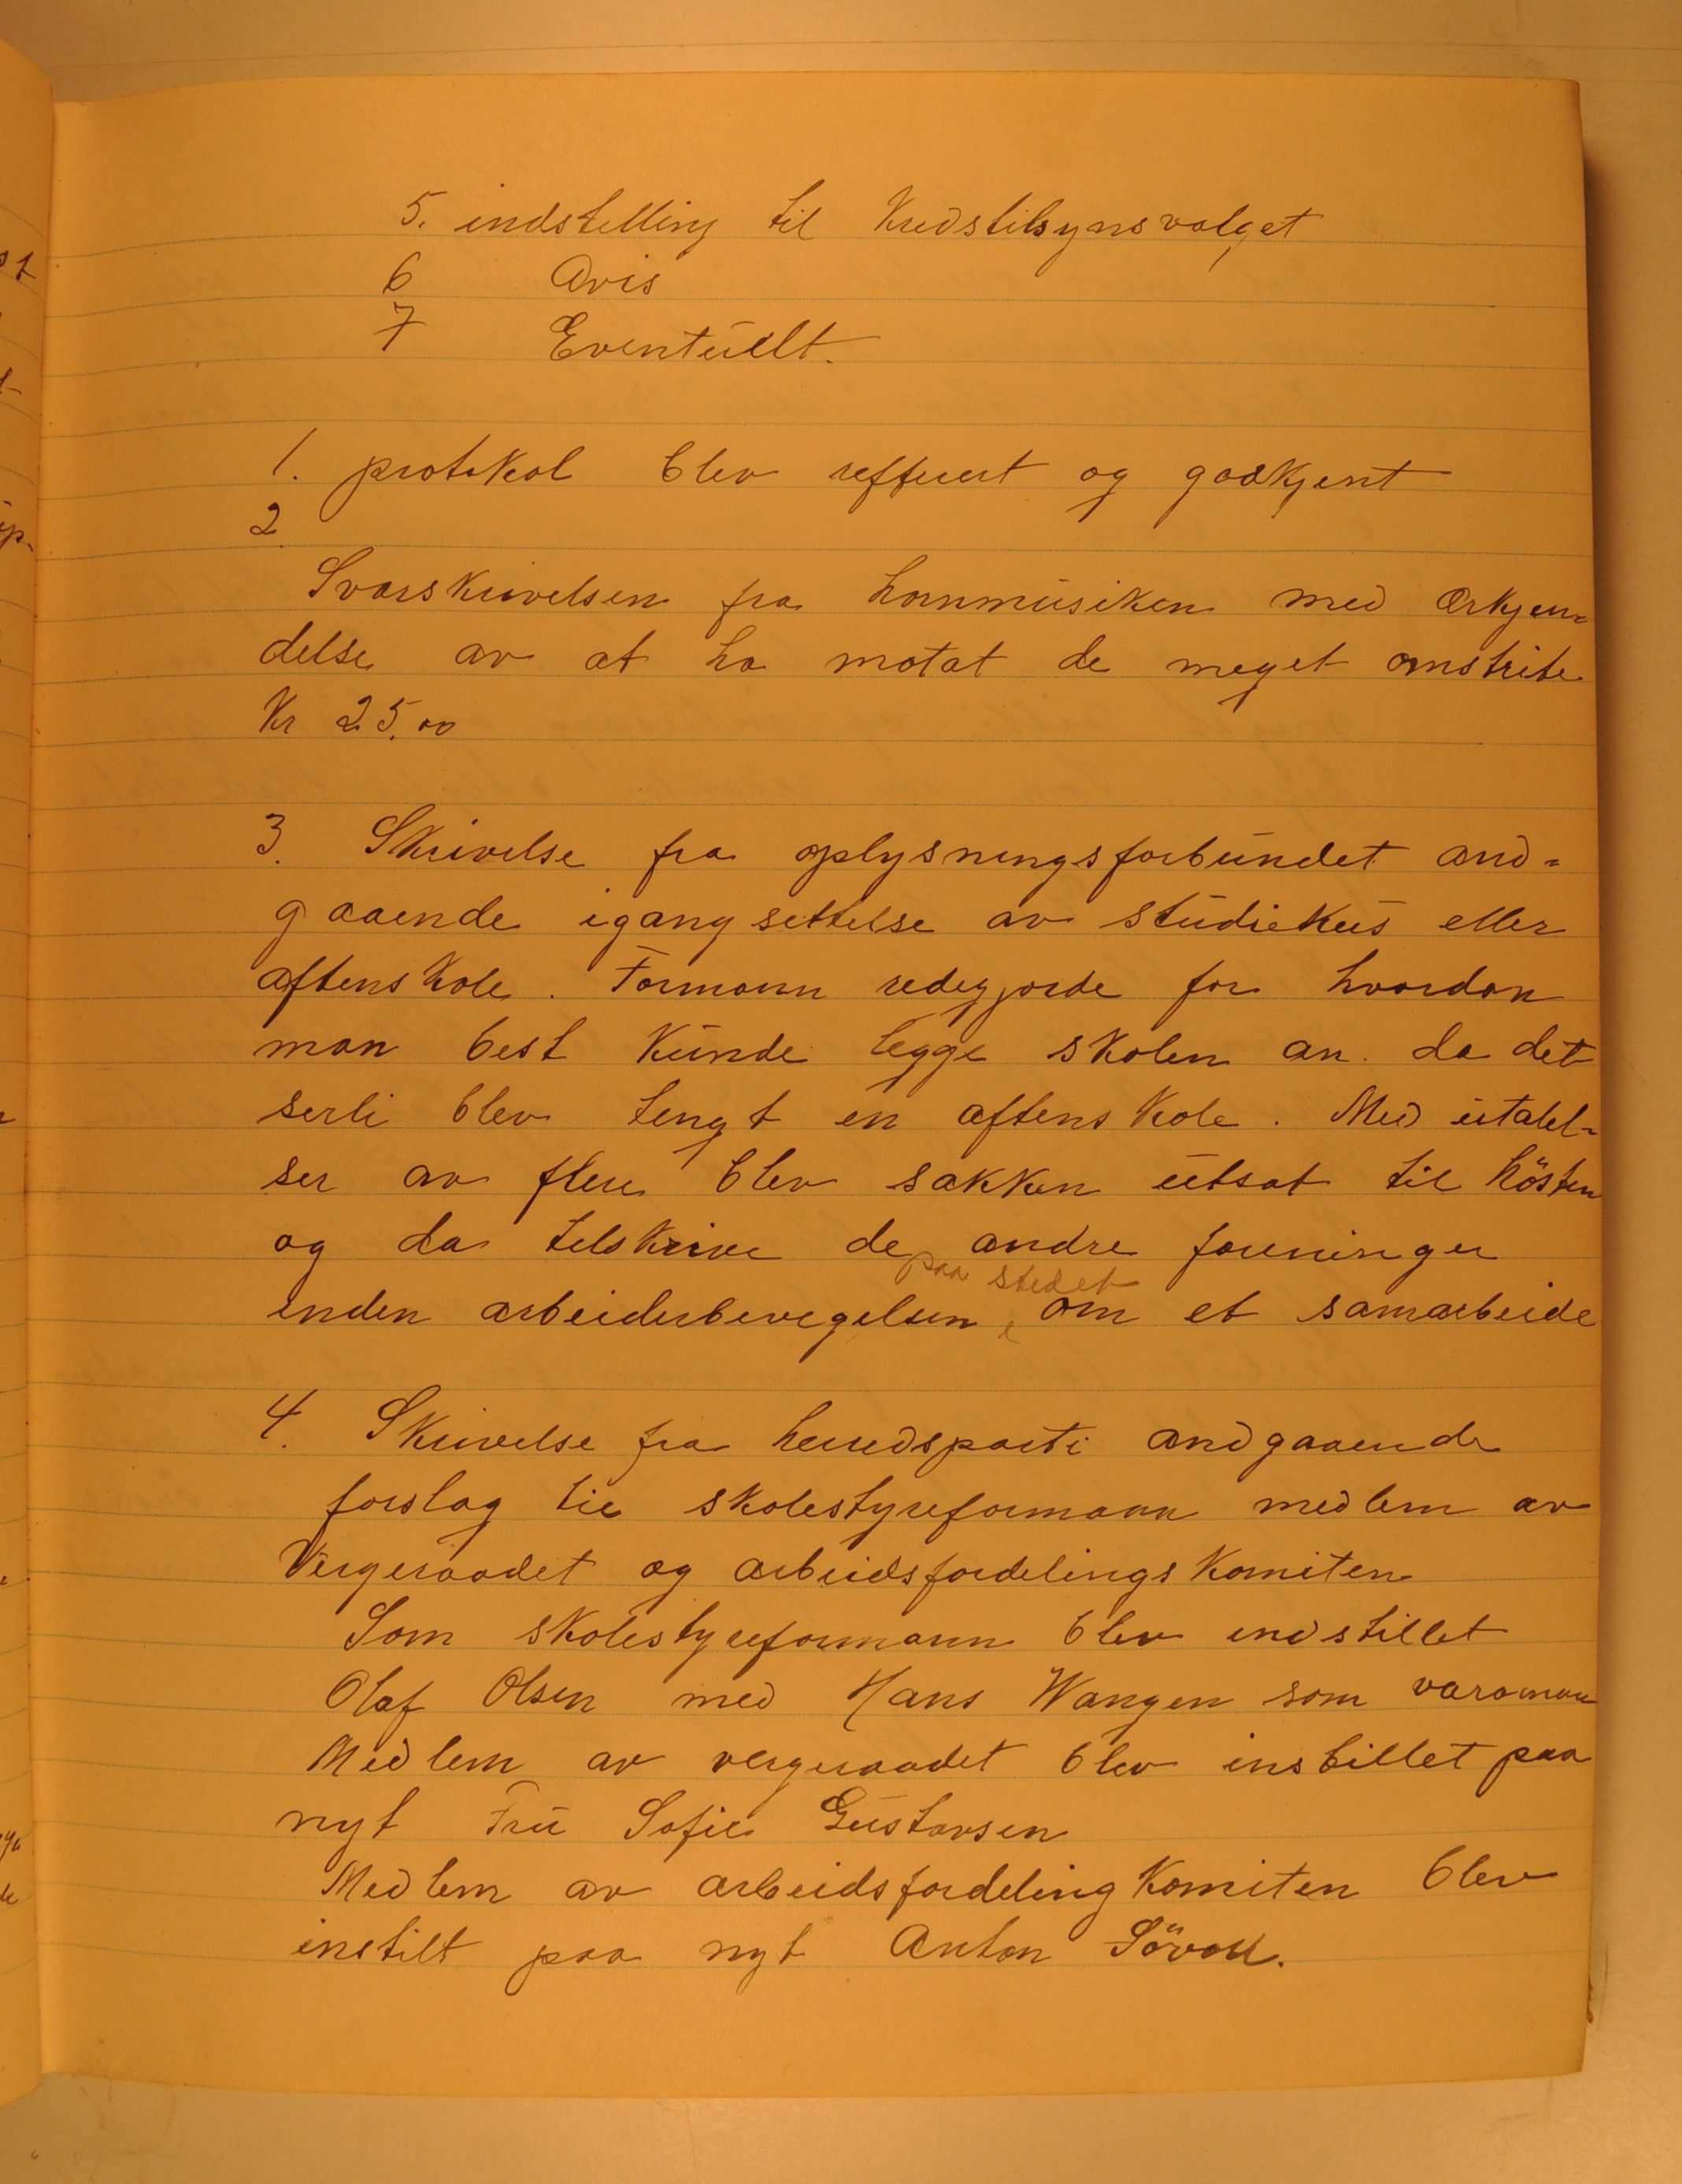 5. indstelling til Kredstilsynsvalget
6 Avis
7 Eventuelt.
1. protokol blev reffrert og godkjent
2
Svarskrivelsen fra hornmusiken med erkjen-
delse av at ha motat de meget omstrite
Kr 25,00
3. Skrivelse fra oplysningsforbundet and-
gaaende igangsettelse av studiekus eller
aftenskole. Formann redegjorde for hvordan
man best kunde legge skolen an. da det
serli blev tengt en aftenskole. Med utalel-
ser av flere blev sakken utsat til hösten
og da telskrive de andre foreninger
paa stedet
inden arbeiderbevegelsen, om et samarbeide
4. Skrivelse fra herredsparti andgaaende
forslag til skolestyreformann medlem av
Vergeraadet og arbeidsfordelingskomiten
Som skolestyreformann blev indstillet
Olaf Olsen med Hans Wangen som varamann
Medlem av vergeraadet blev instillet paa
nyt Fru Sofie Gustavsen
Medlem av arbeidsfordelingkomiten blev
instilt paa nyt Anton